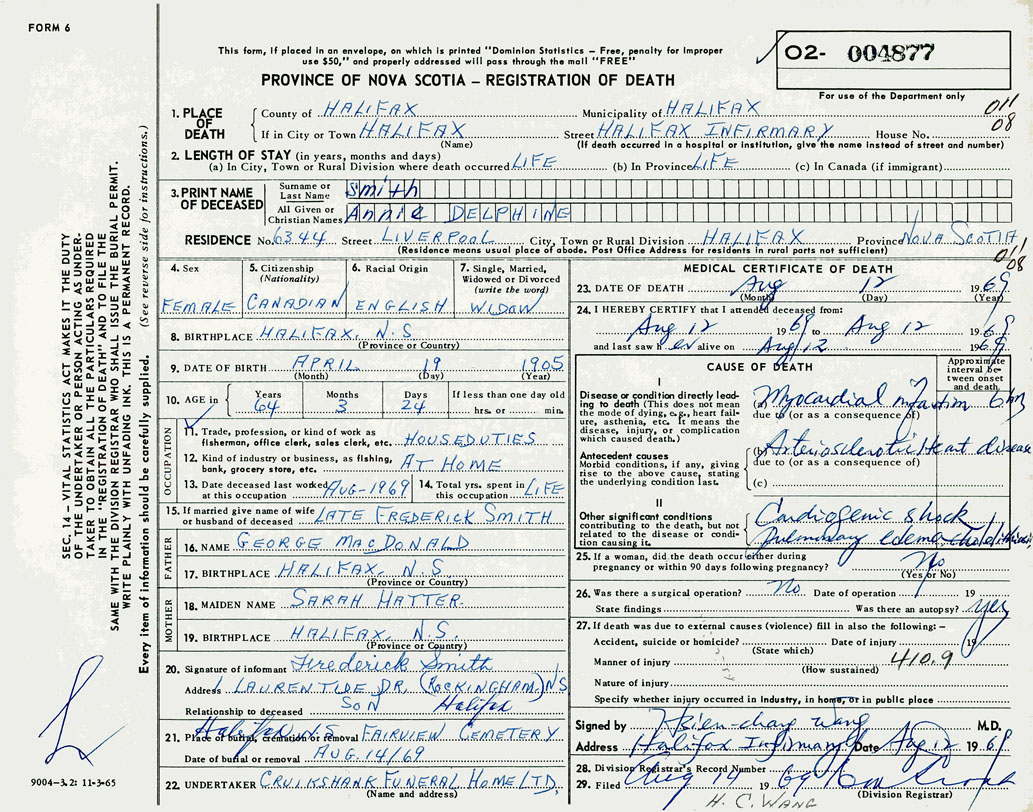 FORM 6
This form, if placed in an envelope, on which is printed "Dominion Statistics – Free, penalty for improper
use $50," and properly addressed will pass through the mail "FREE"
O2- 004877
For use of the Department only
PROVINCE OF NOVA SCOTIA – REGISTRATION OF DEATH
011
08
1. PLACE OF DEATH
County of HALIFAX Municipality of HALIFAX
If in City or Town HALIFAX Street HALIFAX INFIRMARY House No.
(Name) (If death occurred in a hospital or institution, give the name instead of street and number)
2. LENGTH OF STAY (in years, months and days)
(a) In City, Town or Rural Division where death occurred LIFE (b) In Province LIFE (c) In Canada (if immigrant)
3. PRINT NAME OF DECEASED
Surname or Last Name Smith
All Given or Christian Names Annie DELPHINE
RESIDENCE No. 6344 Street LIVERPOOL City, Town or Rural Division HALIFAX Province NOVA SCOTIA
(Residence means usual place of abode. Post Office Address for residents in rural parts not sufficient)
011
08
4. Sex FEMALE
5. Citizenship (Nationality) CANADIAN
6. Racial Origin ENGLISH
7. Single, Married, Widowed or Divorced (write the word) WIDOW
8. BIRTHPLACE HALIFAX, N.S
(Province or Country)
9. DATE OF BIRTH APRIL 19 1905
(Month) (Day) (Year)
10. AGE in Years 64 Months 3 Days 24 If less than one day old hrs. or min.
OCCUPATION
11. Trade, profession, or kind of work as fisherman, office clerk, sales clerk, etc. HOUSEDUTIES
12. Kind of industry or business, as fishing, bank, grocery store, etc. AT HOME
13. Date deceased last worked at this occupation AUG-1969 14. Total yrs. spent in this occupation LIFE
15. If married give name of wife or husband of deceased LATE FREDERICK SMITH
FATHER
16. NAME GEORGE MACDONALD
17. BIRTHPLACE HALIFAX, N.S
(Province or Country)
MOTHER
18. MAIDEN NAME SARAH HATTER.
19. BIRTHPLACE HALIFAX, N.S.
(Province or Country)
20. Signature of informant Frederick Smith
Address 1 LAURENTIDE DR. (ROCKINGHAM) N.S
Relationship to deceased SON Halifax
21. Place of burial, cremation or removal Halifax N.S FAIRVIEW CEMETERY
Date of burial or removal AUG. 14/69
22. UNDERTAKER CRUIKSHANK FUNERAL HOME LTD.
(Name and address)
MEDICAL CERTIFICATE OF DEATH
23. DATE OF DEATH Aug 12 1969
(Month) (Day) (Year)
24. I HEREBY CERTIFY that I attended deceased from:
Aug 12 1969 to Aug 12 1969
and last saw her alive on Aug 12 1969
CAUSE OF DEATH
Approximate interval between onset and death
I
Disease or condition directly leading to death (This does not mean the mode of dying, e.g., heart failure, asthenia, etc. It means the disease, injury, or complication which caused death.)
(a) Myocardial infarction 6 hrs
due to (or as a consequence of)
Antecedent causes
Morbid conditions, if any, giving rise to the above cause, stating the underlying condition last.
(b) Arteriosclerotic Heart disease
due to (or as a consequence of)
(c)
II
Other significant conditions contributing to the death, but not related to the disease or condition causing it.
Cardiogenic shock
pulmonary edema
25. If a woman, did the death occur either during pregnancy or within 90 days following pregnancy? No
(Yes or No)
26. Was there a surgical operation? No Date of operation 19
State findings Was there an autopsy? yes
27. If death was due to external causes (violence) fill in also the following: –
Accident, suicide or homicide? Date of injury 19
(State which)
Manner of injury 410.9
(How sustained)
Nature of injury
Specify whether injury occurred in industry, in home, or in public place
Signed by Hsien-chang Wang M.D.
Address Halifax Infirmary Date Aug 12 1969
28. Division Registrar's Record Number
29. Filed Aug 14 1969
(Division Registrar)
H. C. WANG
SEC. 14 – VITAL STATISTICS ACT MAKES IT THE DUTY
OF THE UNDERTAKER OR PERSON ACTING AS UNDER-
TAKER TO OBTAIN ALL THE PARTICULARS REQUIRED
IN THE "REGISTRATION OF DEATH" AND TO FILE THE
SAME WITH THE DIVISION REGISTRAR WHO SHALL ISSUE THE BURIAL PERMIT.
WRITE PLAINLY WITH UNFADING INK. THIS IS A PERMANENT RECORD.
Every item of information should be carefully supplied. (See reverse side for instructions.)
9004-3.2: 11-3-65